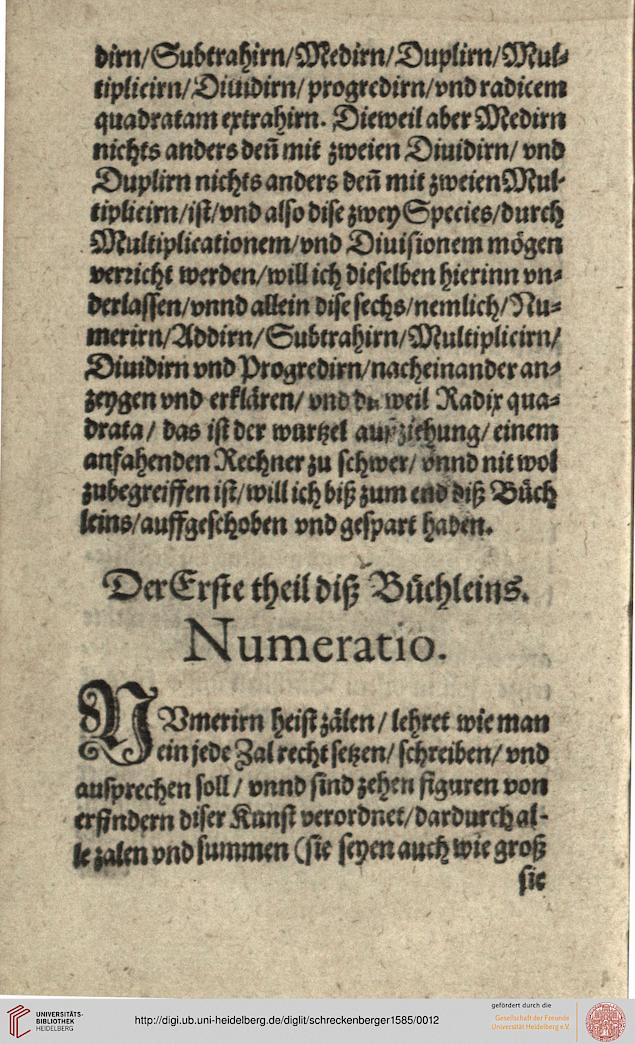 dirn/Subtrahirn/Medirn/Duplirn/Mul⸗
tiplicirn/Diuidirn/progredirn/vnd radicem
quadratam extrahirn. Dieweil aber Medirn
nichts anders deñ mit zweien Diuidirn/ vnd
Duplirn nichts anders deñ mit zweien Mul⸗
tiplicirn/ist/vnd also dise zwey Species/durch
Multiplicationem/vnd Diuisionem mögen
verricht werden/will ich dieselben hierinn vn⸗
derlassen/vnnd allein dise sechs/nemlich/Nu⸗
merirn/Addirn/Subtrahirn/Multiplicirn/
Diuidirn vnd Progredirn/nacheinander an⸗
zeygen vnd erklären/ vnd weil Radix qua⸗
drata/ das ist der wurtzel außziehung/ einem
anfahenden Rechner zu schwer/ vnnd nit wol
zubegreiffen ist/will ich biß zum end diß Büch
leins/auffgeschoben vnd gespart haben.
Der Erste theil diß Büchleins.
Numeratio.
NVmerirn heist zälen/ lehret wie man
ein jede Zal recht setzen/ schreiben/ vnd
ausprechen soll/ vnnd sind zehen figuren von
erfindern diser Kunst verordnet/dardurch al-
le zalen vnd summen (sie seyen auch wie groß
sie
UNIVERSITÄTS-
BIBLIOTHEK
HEIDELBERG
http://digi.ub.uni-heidelberg.de/diglit/schreckenberger1585/0012
gefördert durch die
Gesellschaft der Freunde
Universität Heidelberg e.V.